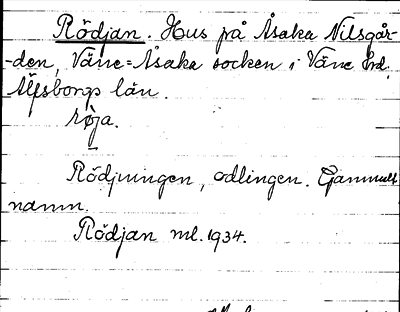 Rödjan. Hus på Åsaka Nilsgår-
-den, Väne=Åsaka socken i Väne hrd.
Älfsborgs län.
røja.
Rödjningen, odlingen. Gammalt
namn.
Rödjan ml. 1934.